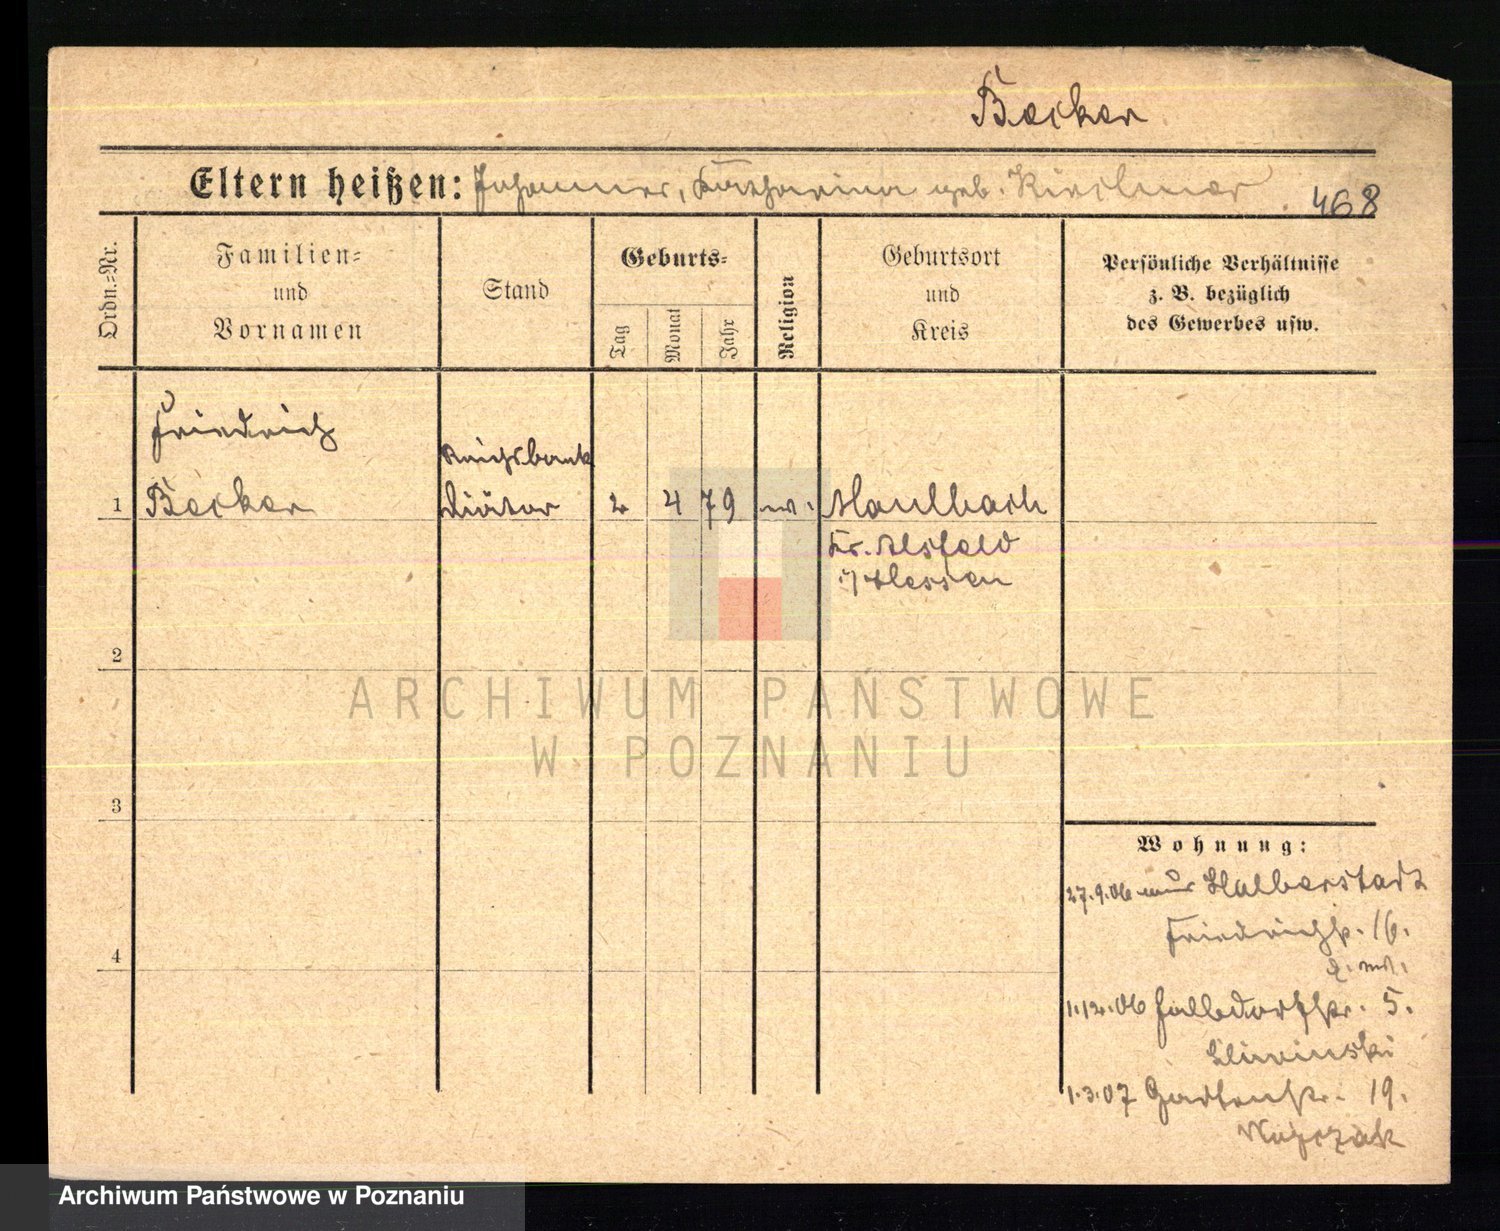 Becker
Eltern heißen: Johannes, Katharina geb.
468
Ordn.=Nr.
Familien=
und
Vornamen
Stand
Geburts=
Tag
Monat
Jahr
Religion
Geburtsort
und
Kreis
Persönliche Verhältnisse
z. B. bezüglich
des Gewerbes usw.
Friedrich
Reichsbank
1 Becker Diätar 2 4 79 Maulbach
Kr. Alsfeld
i/Hessen
2
3
4
Wohnung:
27.9.06 aus Halberstadt
Friedrichstr. 16.
1.12.06 5.
Sliwinski
1.3.07 Gartenstr. 19.
ARCHIWUM PAŃSTWOWE
W POZNANIU
Archiwum Państwowe w Poznaniu